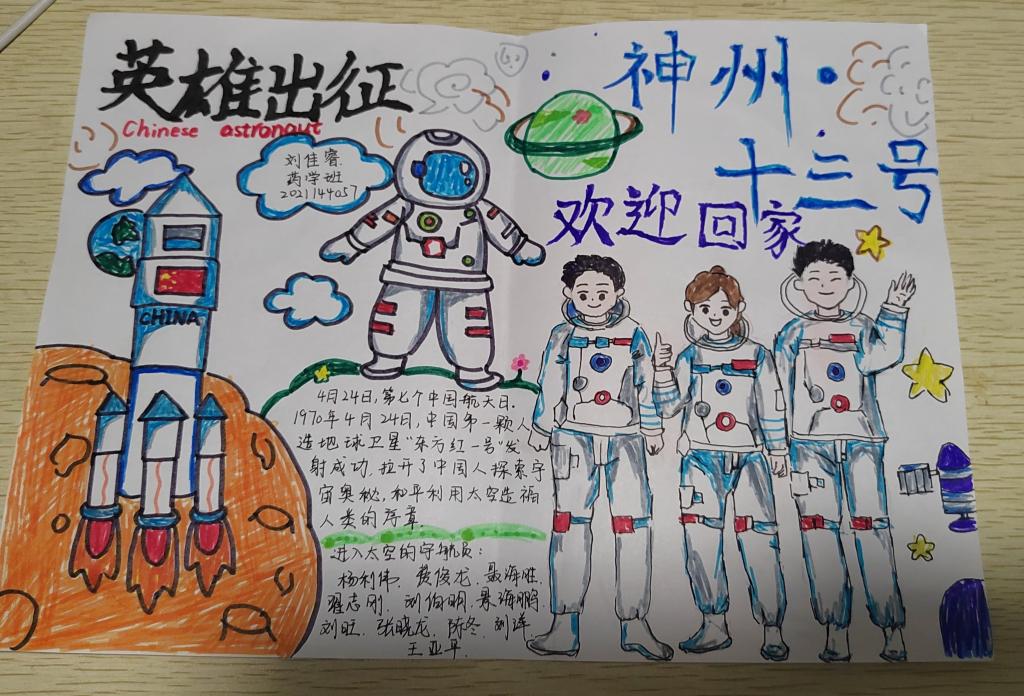 英雄出征
Chinese astronaut
刘佳睿
药学班
2021144057
神州·
十三号
欢迎回家
CHINA
4月24日,第七个中国航天日.
1970年4月24日,中国第一颗人
造地球卫星"东方红一号"发
射成功.拉开了中国人探索宇
宙奥秘,和平利用太空造福
人类的序章.
进入太空的宇航员:
杨利伟.费俊龙.聂海胜.
翟志刚.刘伯明.景海鹏.
刘旺.张晓龙.陈冬.刘洋.
王亚平.